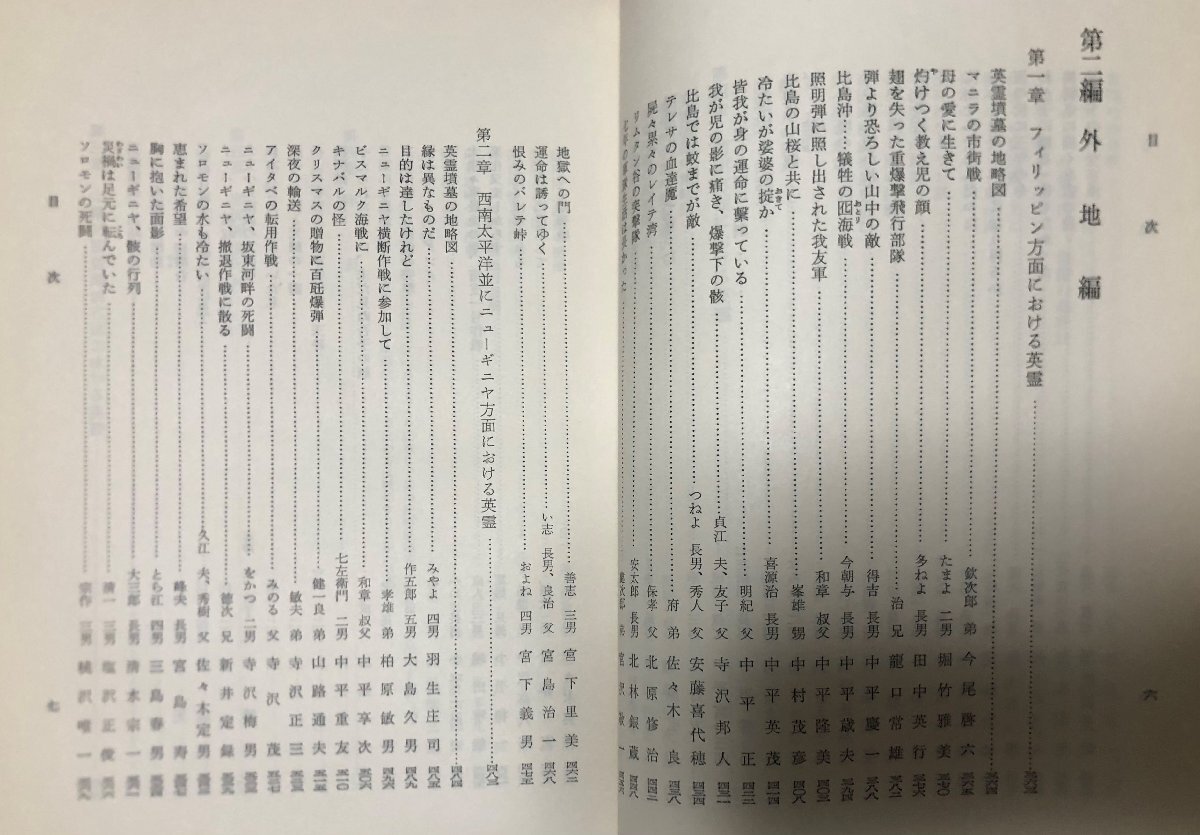 目次
六
第二編 外地編
第一章 フィリッピン方面における英霊
英霊墳墓の地略図
マニラの市街戦 欽次郎 弟 今尾啓六
母の愛に生きて たまよ 二男 堀竹雅美 三七〇
灼けつく教え児の顔 多ねよ 長男 田中英行 三七六
翅を失った重爆撃飛行部隊 治 兄 龍口常雄 三八二
弾より恐ろしい山中の敵 得吉 長男 中平慶一 三八八
比島沖……犠牲の囮海戦 今朝与 長男 中平歳夫 三九四
照明弾に照し出された我友軍 和章 叔父 中平隆美 四〇三
比島の山桜と共に 峯雄 甥 中村茂彦 四〇八
冷たいが娑婆の掟か 喜源治 長男 中平英茂 四一四
皆我が身の運命に繋っている 明紀 父 中平正
我が児の影に痛き、爆撃下の骸 貞江 夫、友子 父 寺沢邦人
比島では蚊までが敵 つねよ 長男、秀人 父 安藤喜代穂 四三四
テレサの血達魔 府 弟 佐々木良 四三八
屍々累々のレイテ湾 保孝 父 北原修治 四四二
リムタン谷の突撃隊 安太郎 長男 北林銀蔵
地獄への門 善志 三男 宮下里美 四六二
運命は誘ってゆく い志 長男、良治 父 宮島治一 四六八
恨みのバレテ峠 およね 四男 宮下義男 四七五
第二章 西南太平洋並にニューギニヤ方面における英霊 四八三
英霊墳墓の地略図 四八四
縁は異なものだ みやよ 四男 羽生庄司 四八五
目的は達したけれど 作五郎 五男 大島久男 四八九
ニューギニヤ横断作戦に参加して 孝雄 父 柏原敏男 四九六
ビスマルク海戦に 和章 叔父 中平享次 五〇六
キナバルの怪 七左衛門 二男 中平重友 五一〇
クリスマスの贈物に百瓩爆弾 健一良 弟 山路通夫
深夜の輸送 敏夫 弟 寺沢正三
アイタペの転用作戦 みのる 父 寺沢茂
ニューギニヤ、坂東河畔の死闘 をかつ 二男 寺沢梅男
ニューギニヤ、撤退作戦に散る 徳次 兄 新井定録
ソロモンの水も冷たい 久江 夫、秀樹 父 佐々木定男
恵まれた希望 峰夫 長男 宮島寿
胸に抱いた面影 とら江 四男 三島春男
ニューギニヤ、骸の行列 大三郎 長男 清水宗一
災禍は足元に転んでいた 清一 三男 塩沢正俊
ソロモンの死闘 宗作 三男 桃沢唯一
目次
七